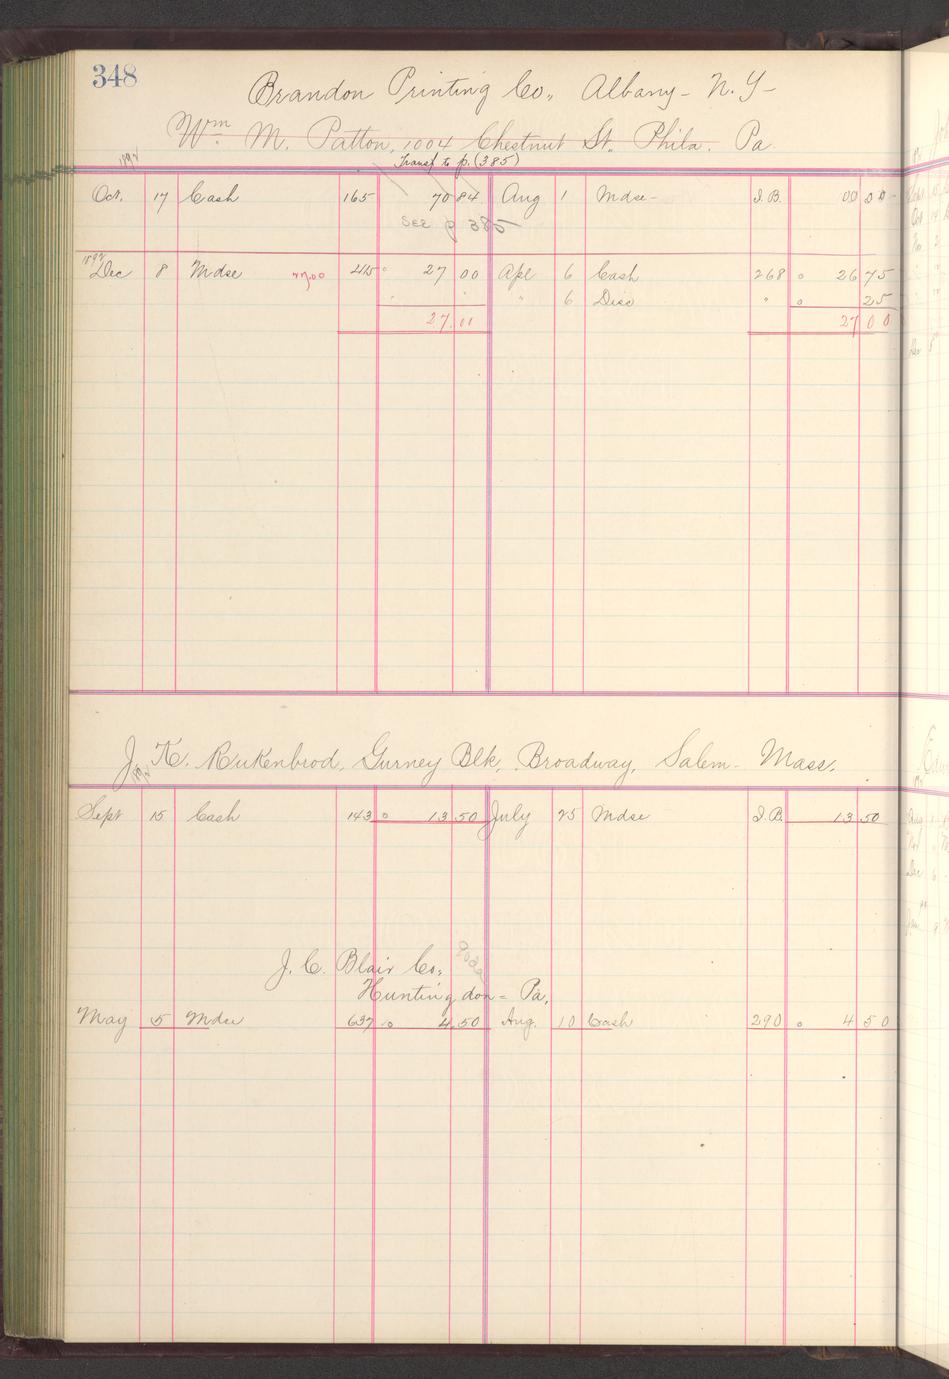 348
Brandon Printing Co., Albany - N.Y -
Wm. M. Patton, 1004 Chestnut St. Phila. Pa
Transf to p. (385)
Oct. 17 Cash 165 70 84 Aug 1 Mdse - I.B.
See p 385
Dec 8 Mdse 27.00 415 27 00 Apl 6 Cash 268 26 75
" 6 Disc " 25
27.00 27 00
J. K. Rukenbrod, Gurney Blk, Broadway, Salem - Mass.
Sept 15 Cash 143 13 50 July 25 Mdse I.B. 13 50
J. C. Blair Co.,
Huntingdon = Pa,
May 5 Mdse 637 4.50 Aug. 10 Cash 290 4 50